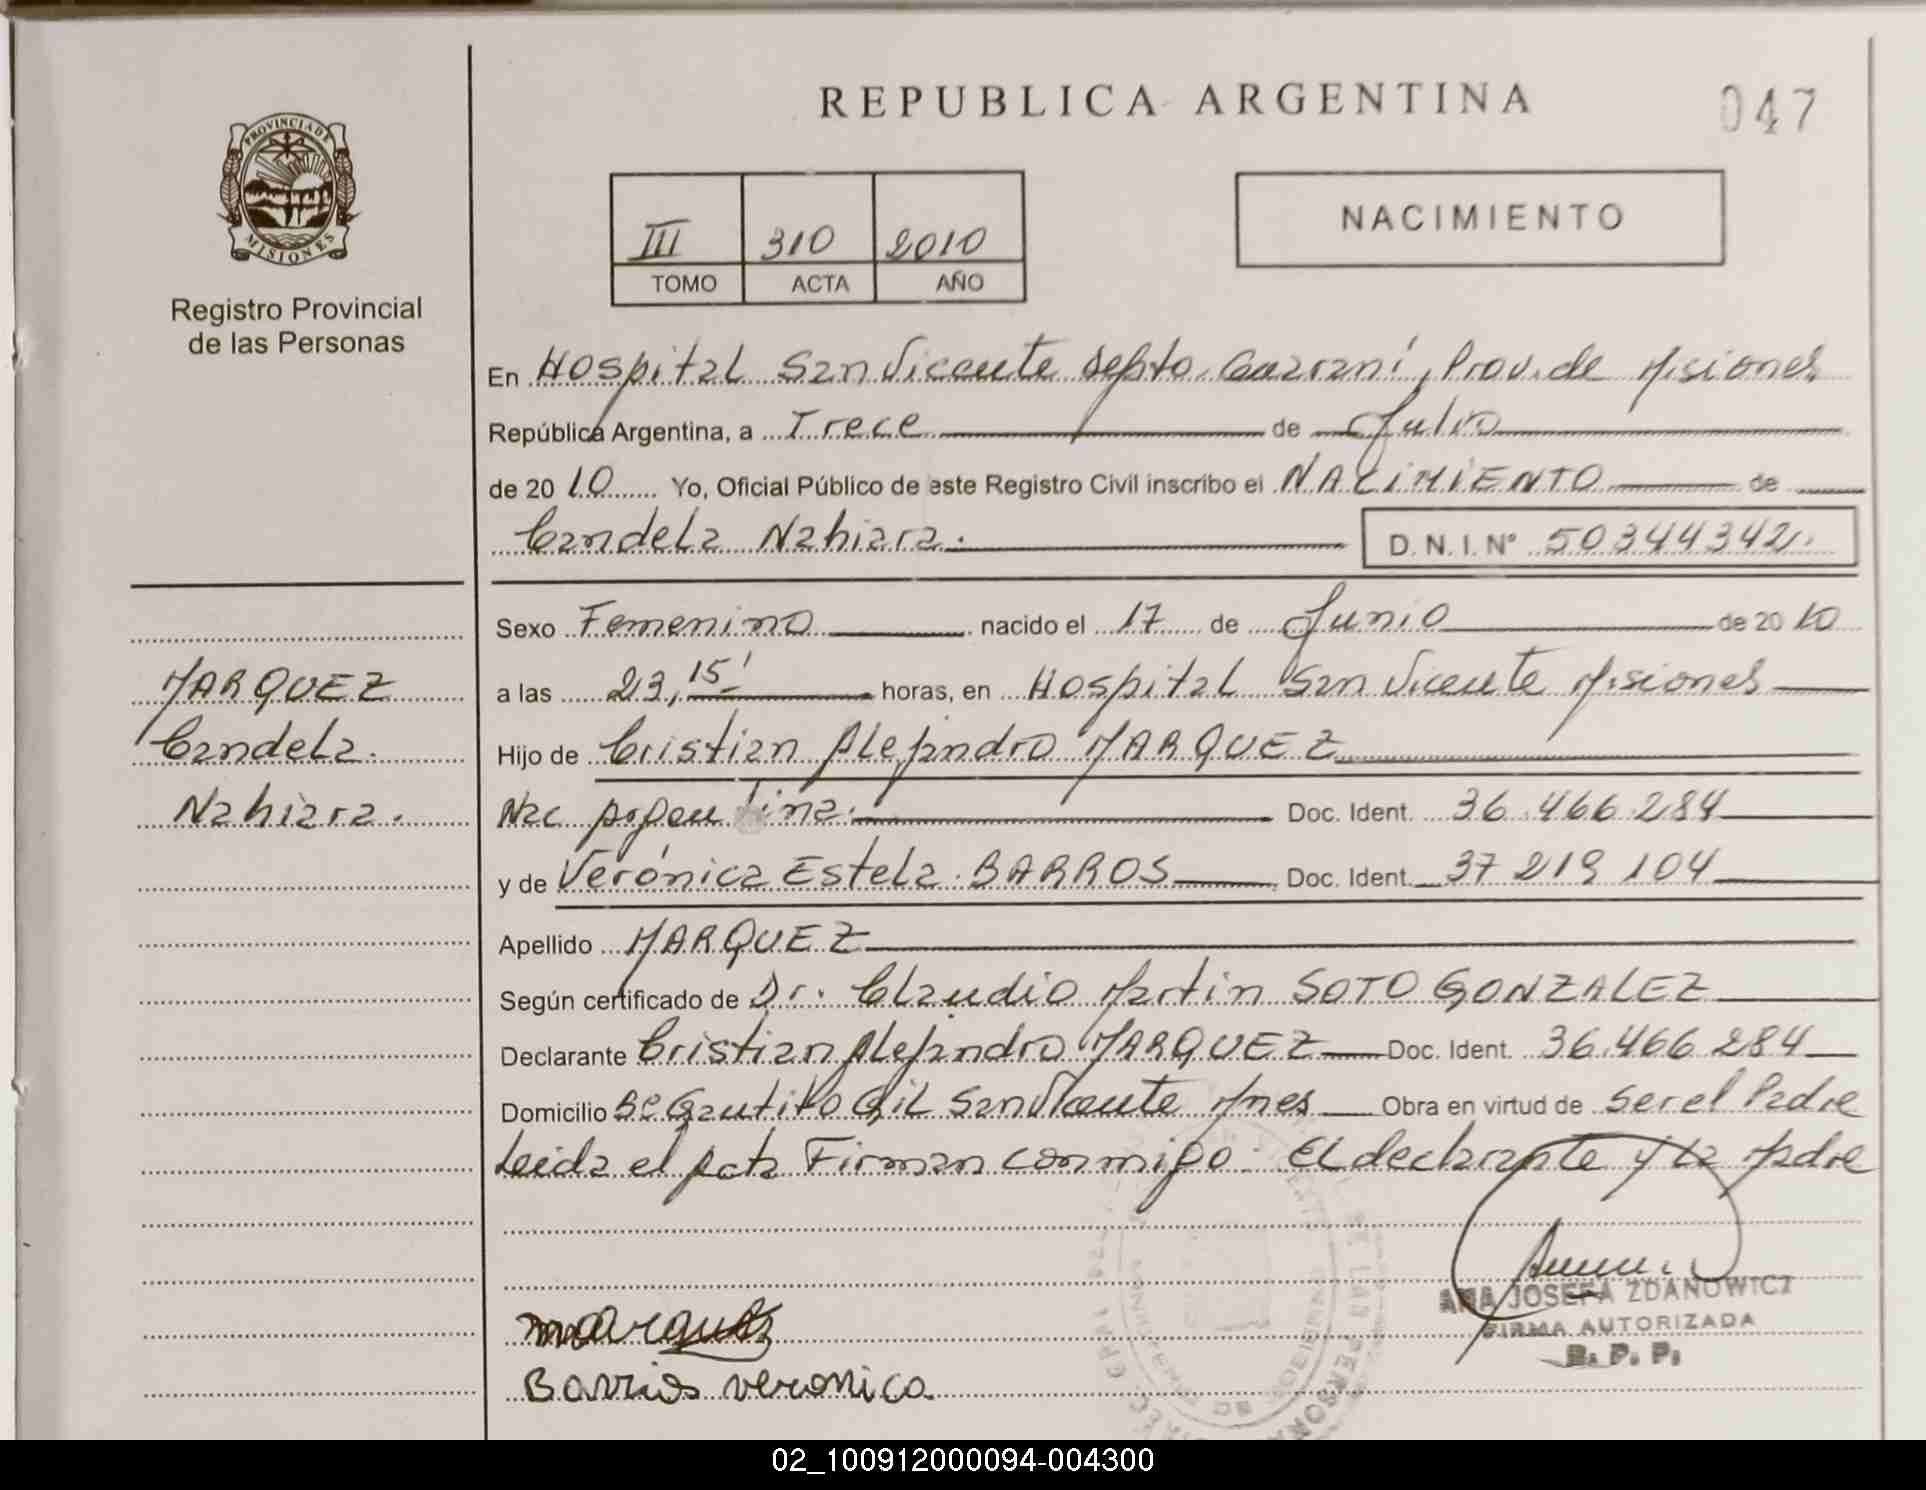 REPUBLICA ARGENTINA
047
PROVINCIA DE
MISIONES
Registro Provincial
de las Personas
III 310 2010
TOMO ACTA AÑO
NACIMIENTO
En Hospital San Vicente Depto. Guaraní, Prov. de Misiones
República Argentina, a Trece de Julio
de 20 10 Yo, Oficial Público de este Registro Civil inscribo el NACIMIENTO de
Candela Nahiara. D. N. I. N° 50344342.
Sexo Femenino nacido el 17 de Junio de 20 10
a las 23,15' horas, en Hospital San Vicente Misiones
MARQUEZ
Candela.
Nahiara.
Hijo de Cristian Alejandro MARQUEZ
Nac Argentina. Doc. Ident. 36.466.284
y de Verónica Estela BARROS Doc. Ident. 37 219 104
Apellido MARQUEZ
Según certificado de Dr. Claudio Martin SOTO GONZALEZ
Declarante Cristian Alejandro MARQUEZ Doc. Ident. 36.466 284
Domicilio Bº Gautito Gil San Vicente Mnes Obra en virtud de ser el Padre
Leida el Acta Firman conmigo. El declarante y la Madre
ANA JOSEFA ZDANOWICZ
FIRMA AUTORIZADA
R. P. P.
marquez
Barrios veronica.
02_100912000094-004300